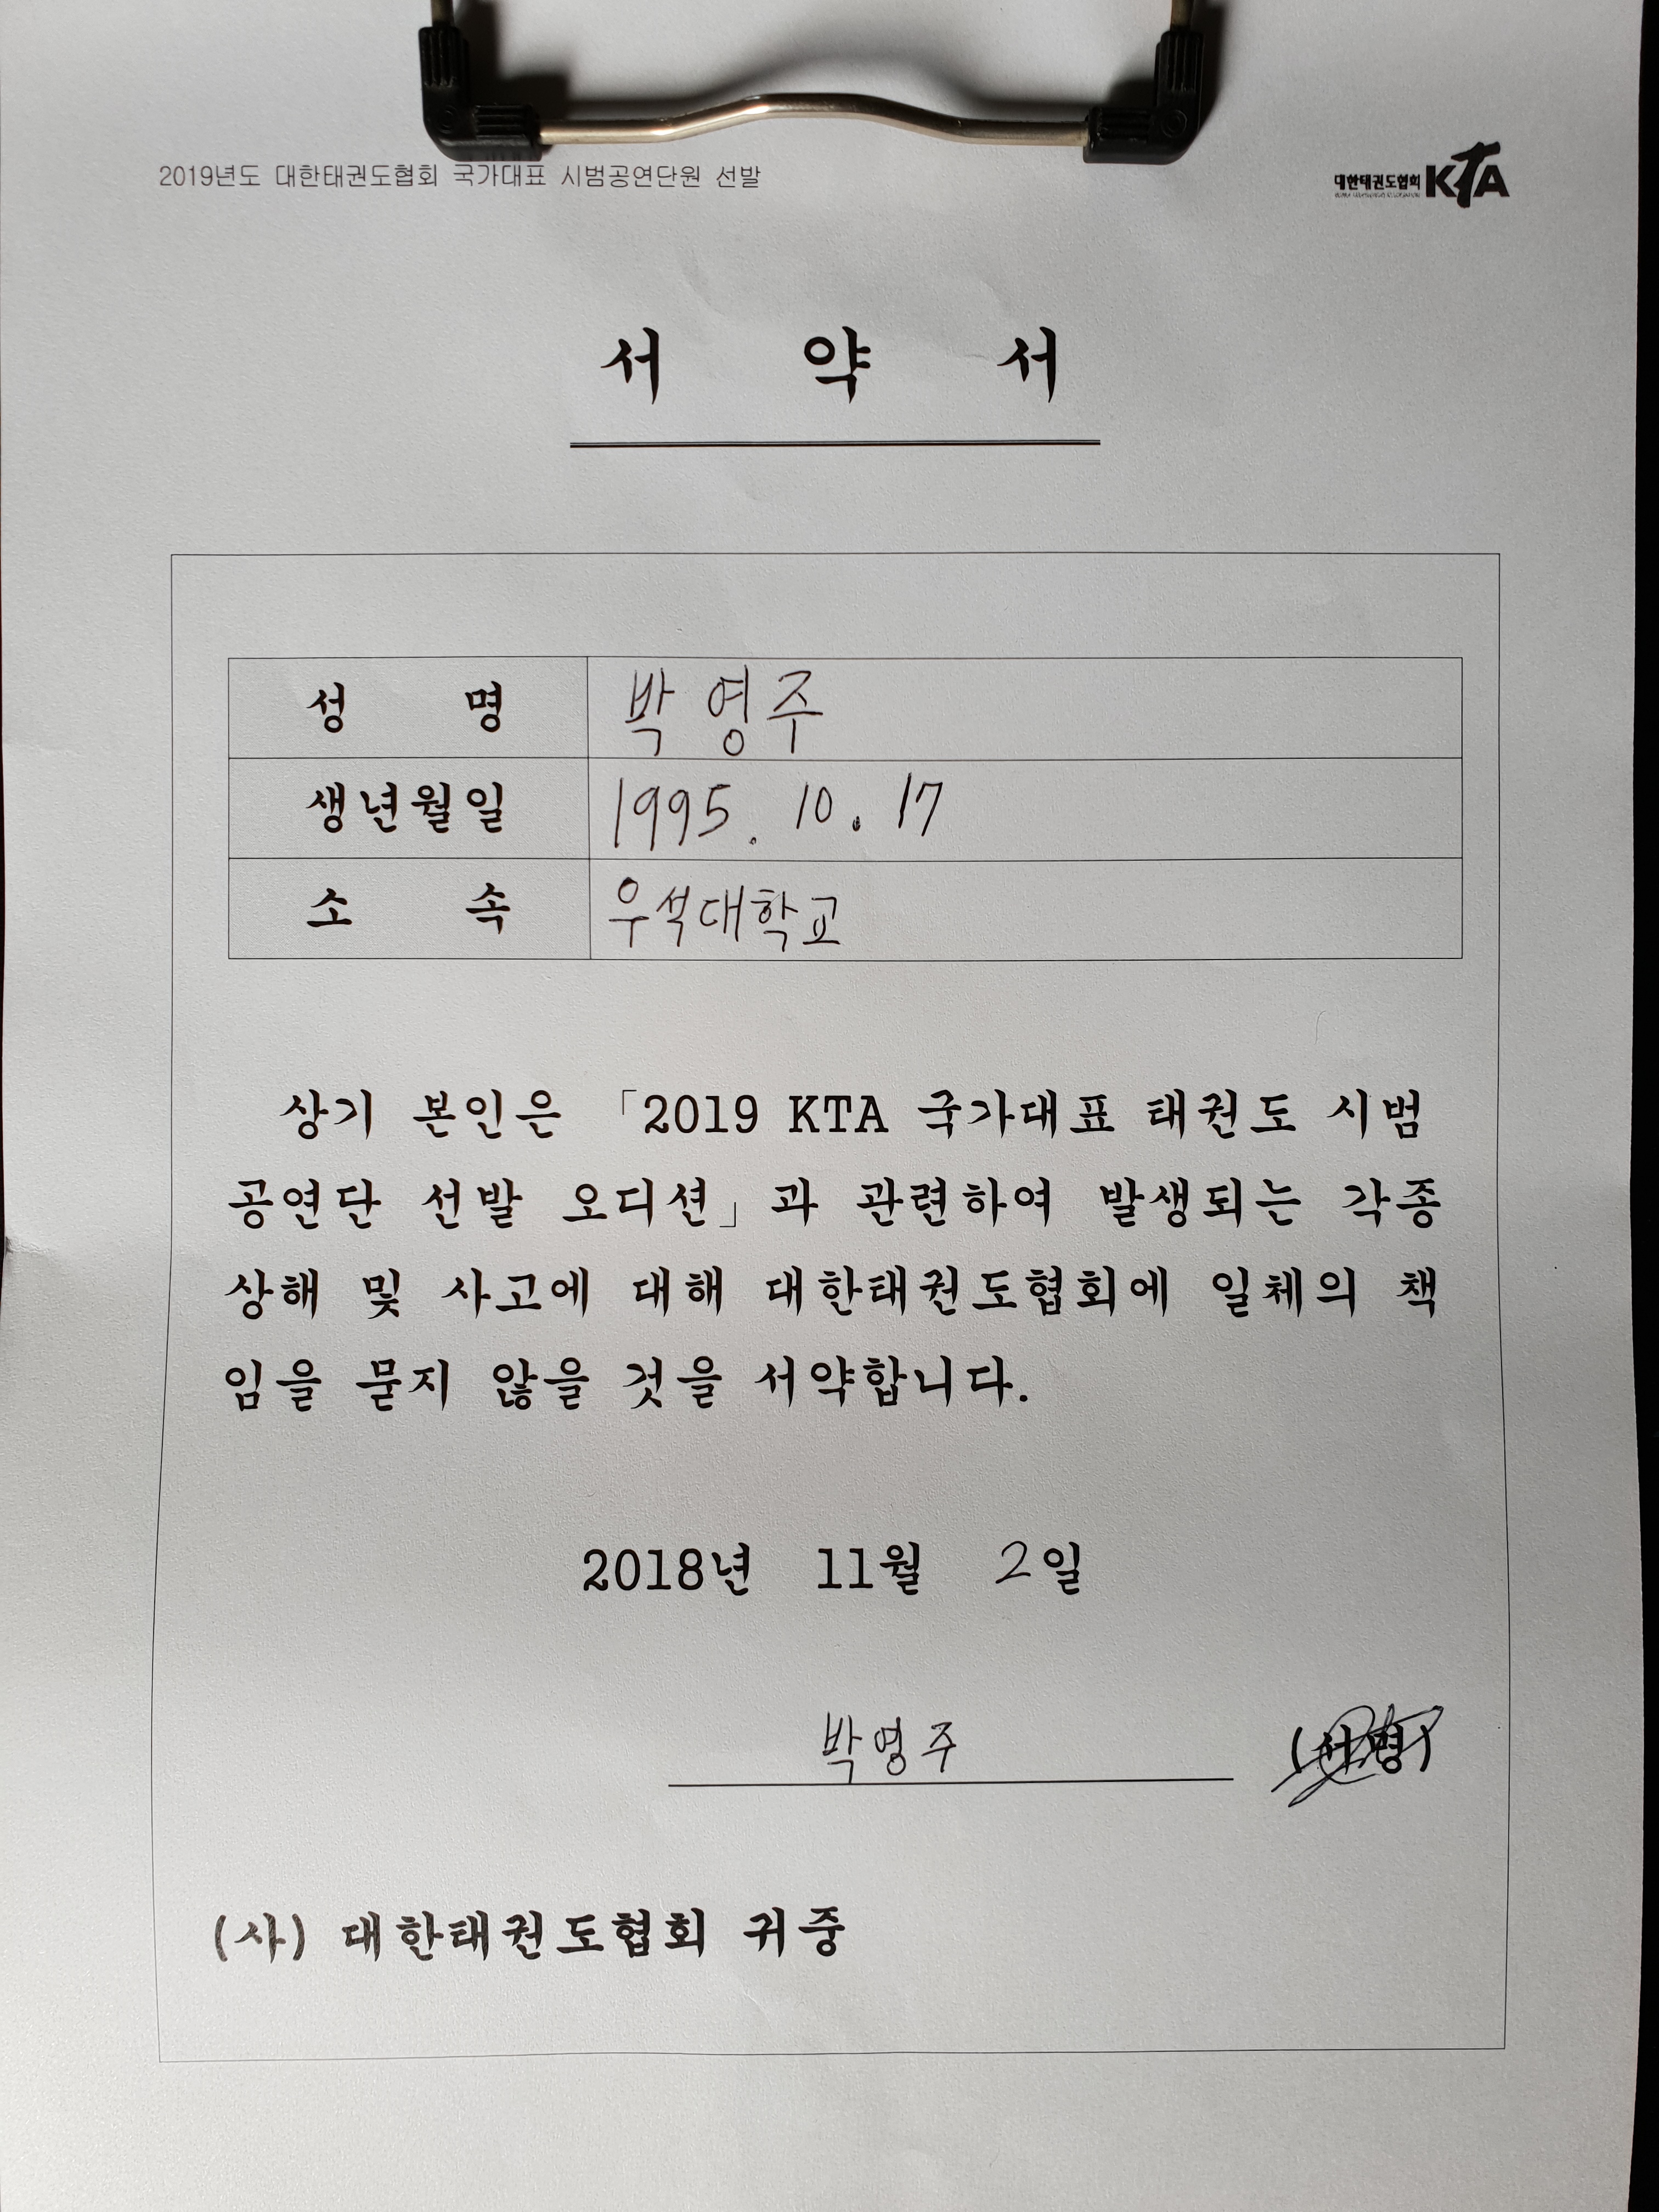 2019년도 대한태권도협회 국가대표 시범공연단원 선발
대한태권도협회 KTA
서 약 서
성 명 박영주
생년월일 1995. 10. 17
소 속 우석대학교
상기 본인은 「2019 KTA 국가대표 태권도 시범
공연단 선발 오디션」과 관련하여 발생되는 각종
상해 및 사고에 대해 대한태권도협회에 일체의 책
임을 묻지 않을 것을 서약합니다.
2018년 11월 2일
박영주 (서명)
(사) 대한태권도협회 귀중